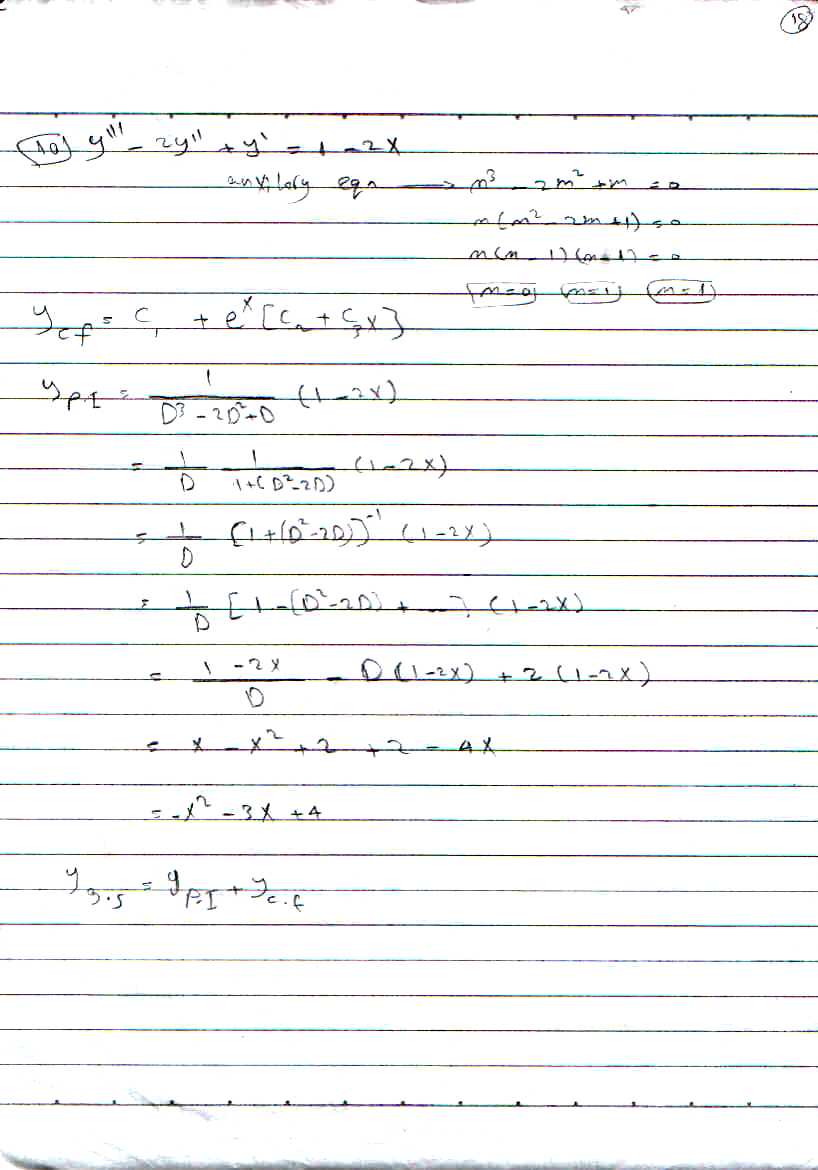 18
10) y''' - 2y'' + y' = 1 - 2x
auxilary eqn → m³ - 2m² + m = 0
m(m² - 2m + 1) = 0
m(m - 1)(m - 1) = 0
m=0 m=1 m=1
y_cf = C₁ + eˣ[C₂ + C₃x]
y_P.I = 1/(D³ - 2D² + D) (1 - 2x)
= 1/D 1/(1+(D²-2D)) (1-2x)
= 1/D [1+(D²-2D)]⁻¹ (1-2x)
= 1/D [1-(D²-2D) + ...] (1-2x)
= (1-2x)/D - D(1-2x) + 2(1-2x)
= x - x² + 2 + 2 - 4x
= -x² - 3x + 4
y_g.s = y_P.I + y_c.f